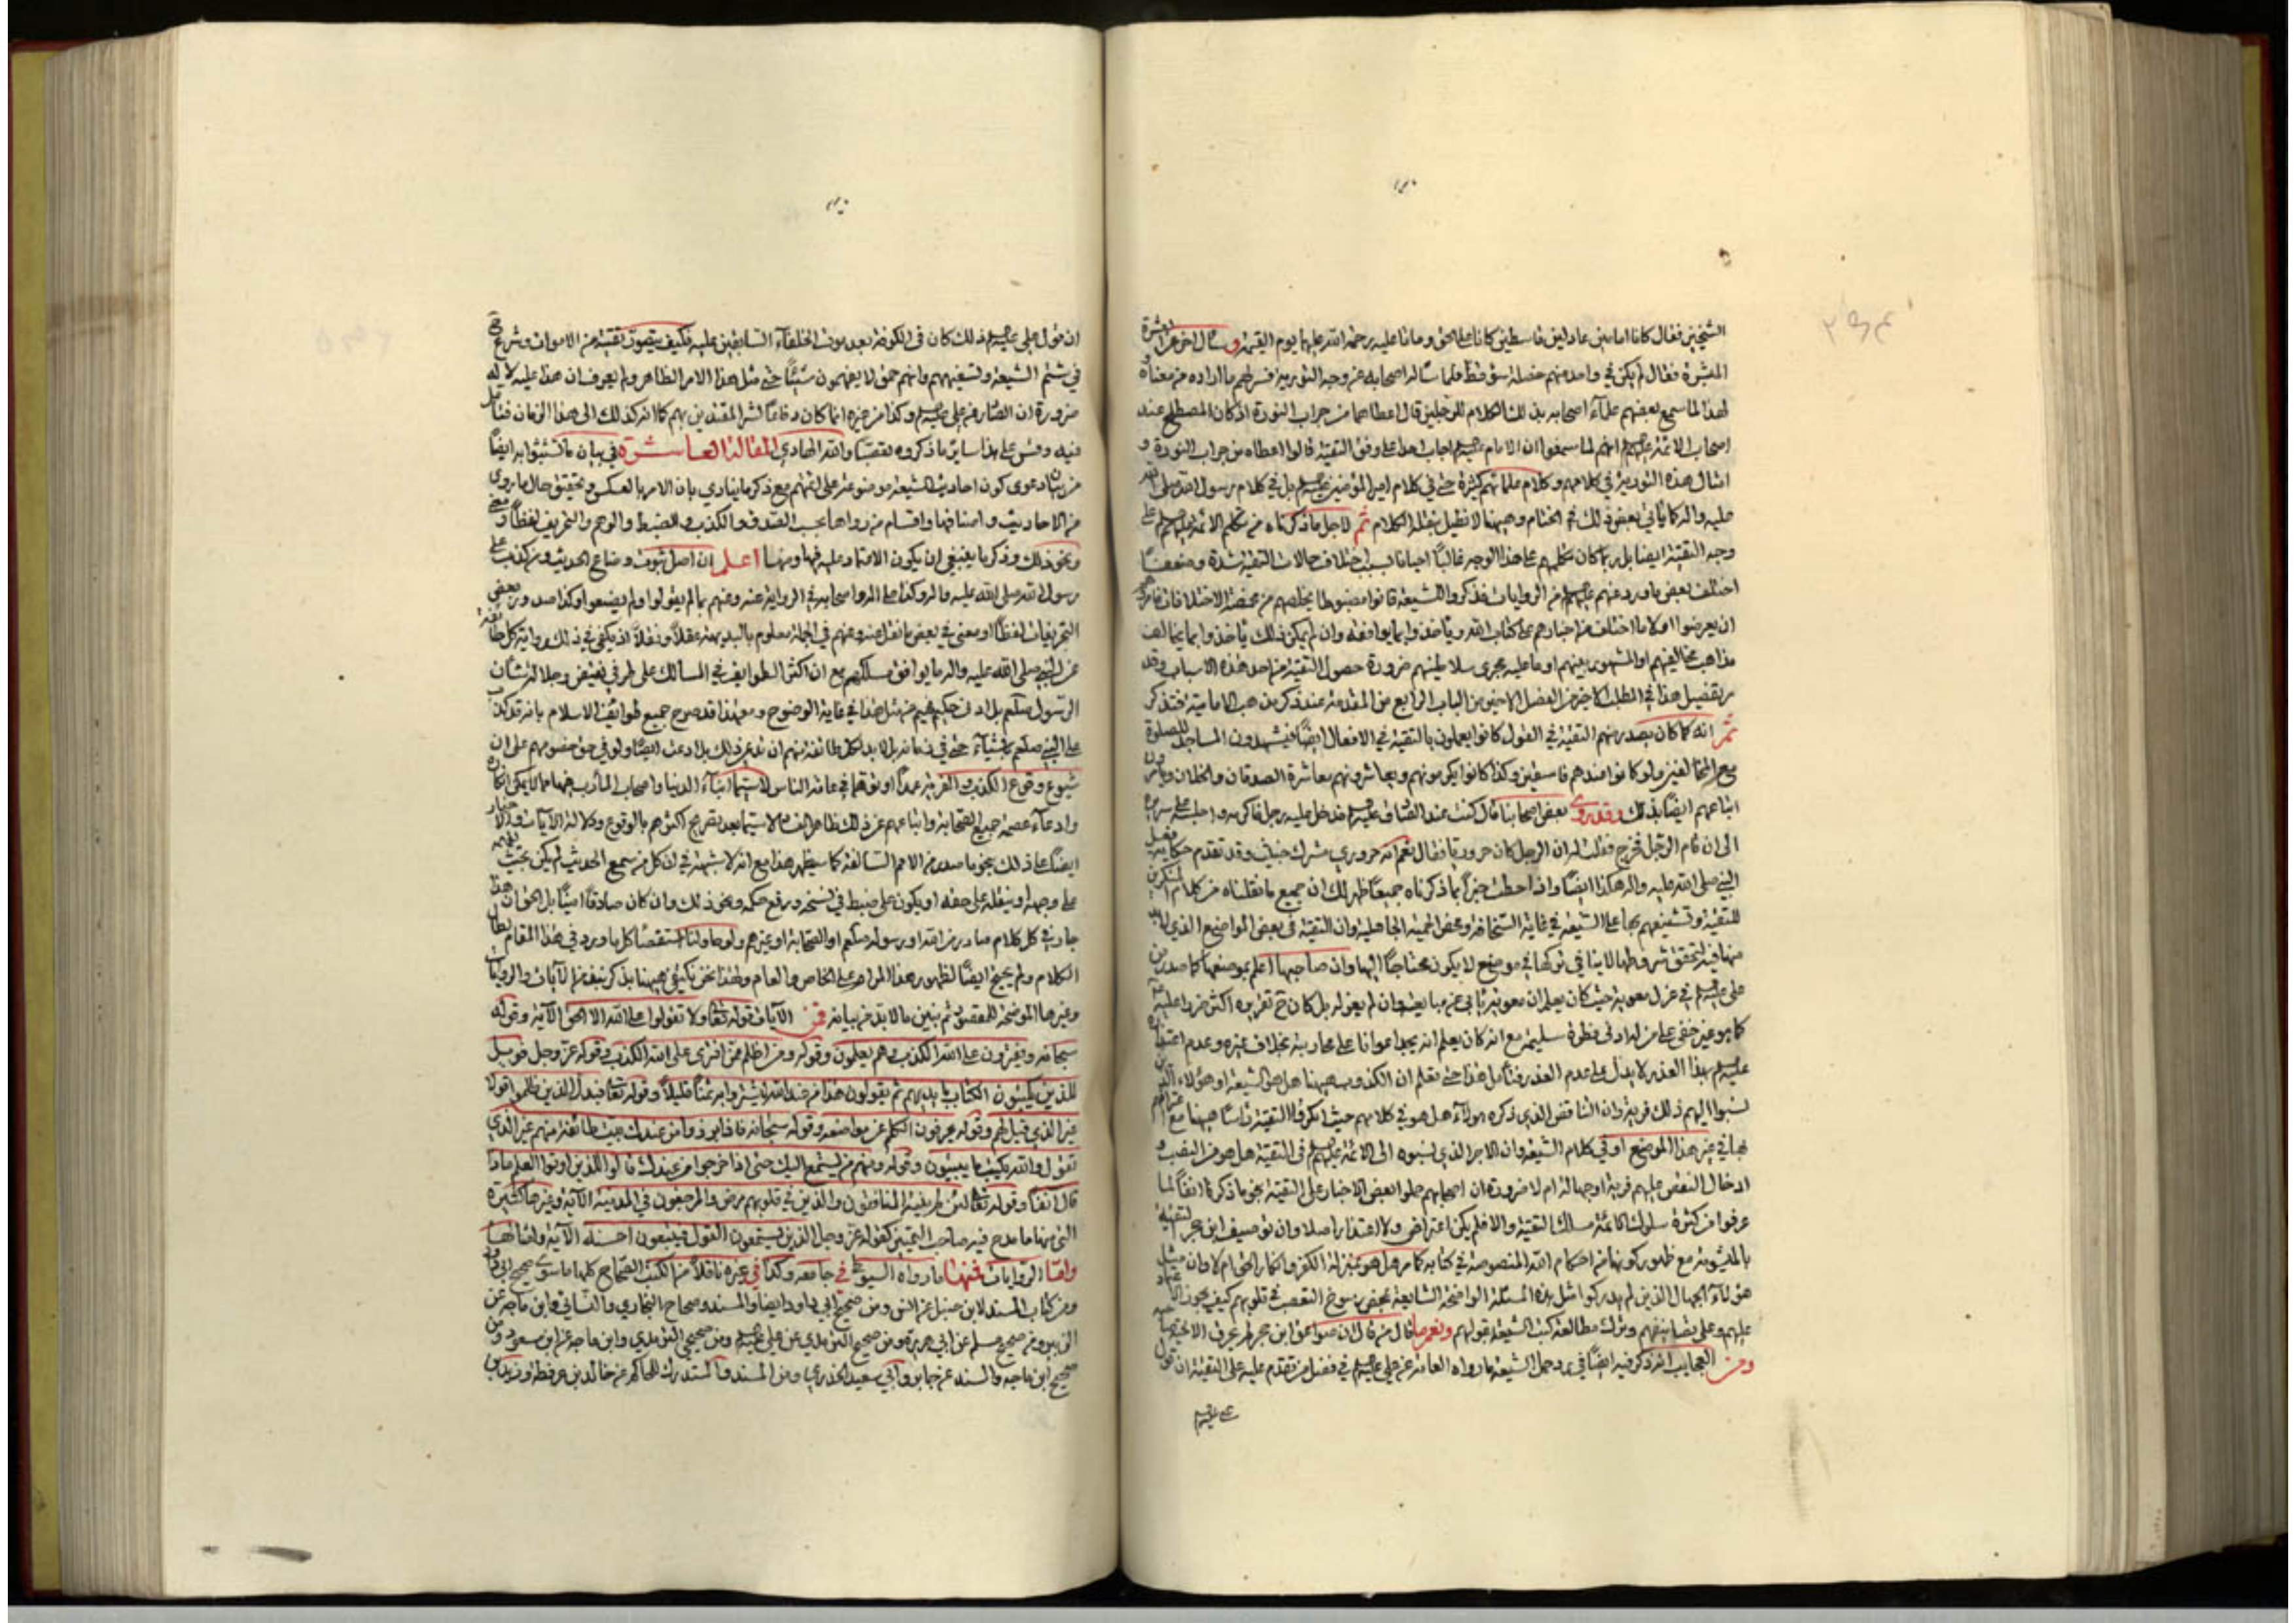 الشيخين فقال كانا امامين عادلين قاسطين كانا على الحق وماتا عليه رحمة الله عليهما يوم القيمة وسأل اخر عن العشرة
المبشرة فقال لم يكن في واحد منهم خصلة سوء قط فلما سأله اصحابه عن وجه التورية فسر لهم ما اراده من معناه و
لهذا لما سمع بعضهم علماء اصحابه بذلك الكلام للرجلين قال اعطاهما من جراب النورة اذ كان المصطلح عند
اصحاب الائمة عليهم انهم لما سمعوا ان الامام اجاب احدا على وفق التقية قالوا اعطاه من جراب النورة و
امثال هذه التورية في كلامهم وكلام علمائهم كثيرة حتى في كلام امير المؤمنين بل في كلام رسول الله صلى الله
عليه واله كما يأتي بعض ذلك في الختام وههنا لا نطيل بنقله الكلام ثم لاجل ما ذكرناه من تكلم الائمة على
وجه التقية ايضا بل ربما كان تكلمهم على هذا الوجه غالبا احيانا بسبب اختلاف حالات التقية شدة وضعفا
اختلف بعض ما ورد عنهم من الروايات فذكروا للشيعة قانونا مضبوطا يخلصهم من مخمصة الاختلافات
ان يعرضوا اولا ما اختلف من اخبارهم على كتاب الله ويأخذوا بما يوافقه وان لم يمكن ذلك يأخذوا بما يخالف
مذاهب مخالفيهم او المشهور بينهم او ما عليه مجرى سلاطينهم ضرورة حصول التقية من احد هذه الاسباب وقد
مر تفصيل هذا في المطلب الاخير من الفصل الاخير من الباب الرابع من المقدمة عند ذكر مذهب الامامية فتذكر
ثم انه كما كان يصدر منهم التقية في القول كانوا يعملون بالتقية في الافعال ايضا فيشهدون المساجد للصلوة
مع المخالفين ولو كانوا عندهم فاسقين وكذا كانوا يكرمونهم ويعاشرونهم معاشرة الصدقان والخلان ويأمرون
اتباعهم ايضا بذلك وقد روى بعض اصحابنا قال كنت عند الصادق فدخل عليه رجل فاكرمه واجلسه على سريره
الى ان قام الرجل فخرج فقلت له ان الرجل كان حروريا فقال نعم انه حروري مشرك وقد تقدم حكاية فعل
النبي صلى الله عليه واله هكذا ايضا واذ احطت خبرا بما ذكرناه جميعا ظهر لك ان جميع ما نقلناه من كلام المنكرين
للتقية وتشنيعهم بها على الشيعة في غاية السخافة ومحض الحمية الجاهلية وان التقية في بعض المواضع الذي لابد
منها فيه لتحقق شروطها لا ينافي تركها في موضع لا يكون محتاجا اليها وان صاحبها اعلم بموضعها كما صدر من
علي في عزل معوية حيث كان يعلم ان معوية يأبى عن مبايعته وان لم يعزله بل كان ح تقريره اكثر ضررا عليه
كما هو غير خفي على من له ادنى فطرة سليمة مع انه كان يعلم انه يجد اعوانا على محاربته بخلاف غيره وعدم اعتذاره
بهذا العذر لا يدل على عدم العذر فتأمل هذا حتى تعلم ان الكذوب ههنا هل هو الشيعة او هؤلاء الذين
نسبوا اليهم ذلك فرية وان التناقض الذي ذكره هؤلاء هل هو في كلامهم حيث انكروا التقية رأسا ههنا مع اعترافهم
بها في غير هذا الموضع او في كلام الشيعة وان الامر الذي نسبوه الى الائمة في التقية هل هو من النصب و
ادخال النقص عليهم فرية او جهالة ام لا ضرورة ان اصحابهم حملوا بعض الاخبار على التقية بنحو ما ذكرنا انفا لما
عرفوا من كثرة سلوك الائمة مسلك التقية والا فلم يكن اعتراض ولا اعتذار اصلا وان توصيف ابن حجر التقية
بالمشومة مع ظهور كونها من احكام الله المنصوصة في كتابه كما مر هل هو بمنزلة الكفر وانكار الحق ام لا وان مثل
هؤلاء الجهال الذين لم يدركوا مثل هذه المسئلة الواضحة الشايعة بمحض رسوخ التعصب في قلوبهم كيف يجوز الاعتماد
عليهم وعلى تصانيفهم وترك مطالعة كتب الشيعة بقولهم ونعم ما قال من قال ان صواعق ابن حجر
ومن العجايب انه ذكر فيه ايضا في رد حمل الشيعة ما رواه العامة عن علي في فضل من تقدم عليه على التقية ان قول
ان قول علي ذلك كان في الكوفة بعد موت الخلفاء السابقين عليه فكيف يتصور تقية من الاموات وشرع ح
في شتم الشيعة وتسفيههم وانهم حمق لا يفهمون شيئا حتى مثل هذا الامر الظاهر ولم يعرف ان هذا عليه لا له
ضرورة ان الصادر من علي وكذا من غيره انما كان دفاعا لشر المقتدين بهم كما انه كذلك الى هذا الزمان فتأمل
فيه وقس على هذا ساير ما ذكروه تعصبا والله الهادي المقالة العاشرة في بيان ما تشبثوا به ايضا
من دعوى كون احاديث الشيعة موضوعة على ائمتهم مع ذكر ما ينادي بان الامر بالعكس وتحقيق حال ما روي
من الاحاديث واصنافها واقسام من رواها بحسب الصدق والكذب والضبط والوهم والتحريف لفظا ومعنى
ونحو ذلك وذكر ما ينبغي ان يكون الاعتماد عليه فيها ومنها اعلم ان اصل ثبوت وضاع الحديث ومن كذب على
رسول الله صلى الله عليه واله وكذا على اله واصحابه في الرواية عنه وعنهم بما لم يقولوا ولم يضعوا وكذا صدور بعض
التحريفات لفظا او معنى في بعض ما نقل عنه وعنهم في الجملة معلوم بالبديهة عقلا ونقلا اذ يكفي في ذلك رواية كل طائفة
عن النبي صلى الله عليه واله ما يوافق مسلكهم مع ان اكثر الطوايف في المسالك على طرفي نقيض وجلالة شأن
الرسول صلعم بل ادنى حكيم فهيم عن مثل هذا في غاية الوضوح ومع هذا قد صرح جميع طوائف الاسلام بانه قد كذب
على النبي صلعم باشياء حتى في زمانه بل لابد لكل طائفة منهم ان تدعي ذلك بل ادعت ايضا ولو في حق خصومهم على ان
شيوع وقوع الكذب والفرية عمدا او توهما في عامة الناس لا سيما ابناء الدنيا واصحاب المآرب فيها مما لا يمكن انكاره
وادعاء عصمة جميع الصحابة واتباعهم عن ذلك ظاهر الفساد لا سيما بعد تصريح اكثرهم بالوقوع ودلالة الآيات والاخبار
ايضا على ذلك بنحو ما صدر من الامم السالفة كما سيظهر هذا مع انه لا شبهة في ان كل من سمع الحديث لم يكن بحيث يفهمه
على وجهه او ينقله على حقه او يكون على ضبط في نسخه ورفع حكمه ونحو ذلك وان كان صادقا امينا بل الحق ان هذا
جار في كل كلام صادر من الله او رسوله صلعم او الصحابة او غيرهم ولو حاولنا استقصاء كل ما ورد في هذا المقام لطال
الكلام ولم يحتج ايضا لظهور هذا المرام على الخاص والعام ولهذا نحن نكتفي ههنا بذكر نبذ من الآيات والروايات
وغيرها الموضحة للمقصود ثم نبين ما لابد من بيانه فمن الآيات قوله تعالى ولا تقولوا على الله الا الحق الآية وقوله
سبحانه ويفترون على الله الكذب وهم يعلمون وقوله ومن اظلم ممن افترى على الله الكذب وقوله عز وجل فويل
للذين يكتبون الكتاب بايديهم ثم يقولون هذا من عند الله ليشتروا به ثمنا قليلا وقوله تعالى فبدل الذين ظلموا قولا
غير الذي قيل لهم وقوله يحرفون الكلم عن مواضعه وقوله سبحانه فاذا برزوا من عندك بيت طائفة منهم غير الذي
تقول والله يكتب ما يبيتون وقوله ومنهم من يستمع اليك حتى اذا خرجوا من عندك قالوا للذين اوتوا العلم ماذا
قال انفا وقوله تعالى لئن لم ينته المنافقون والذين في قلوبهم مرض والمرجفون في المدينة الآية وغيرها كثيرة
التي منها ما مدح فيه صاحب التمييز كقوله عز وجل الذين يستمعون القول فيتبعون احسنه الآية وامثالها
واما الروايات فمنها ما رواه السيوطي في جامعه وكذا في غيره ناقلا من الكتب الصحاح كلها ما سوى صحيح ابي داود
ومن كتاب المسند لابن حنبل عن انس ومن صحيح ابي داود ايضا والمسند وصحاح البخاري والنسائي وابن ماجة عن
الزبير ومن صحيح مسلم عن ابي هريرة ومن صحيح الترمذي عن علي ومن صحيحي الترمذي وابن ماجة عن ابن مسعود ومن
صحيح ابن ماجة والمسند عن جابر وابي سعيد الخدري ومن المسند والمستدرك للحاكم عن خالد بن عرفطة وزيد بن